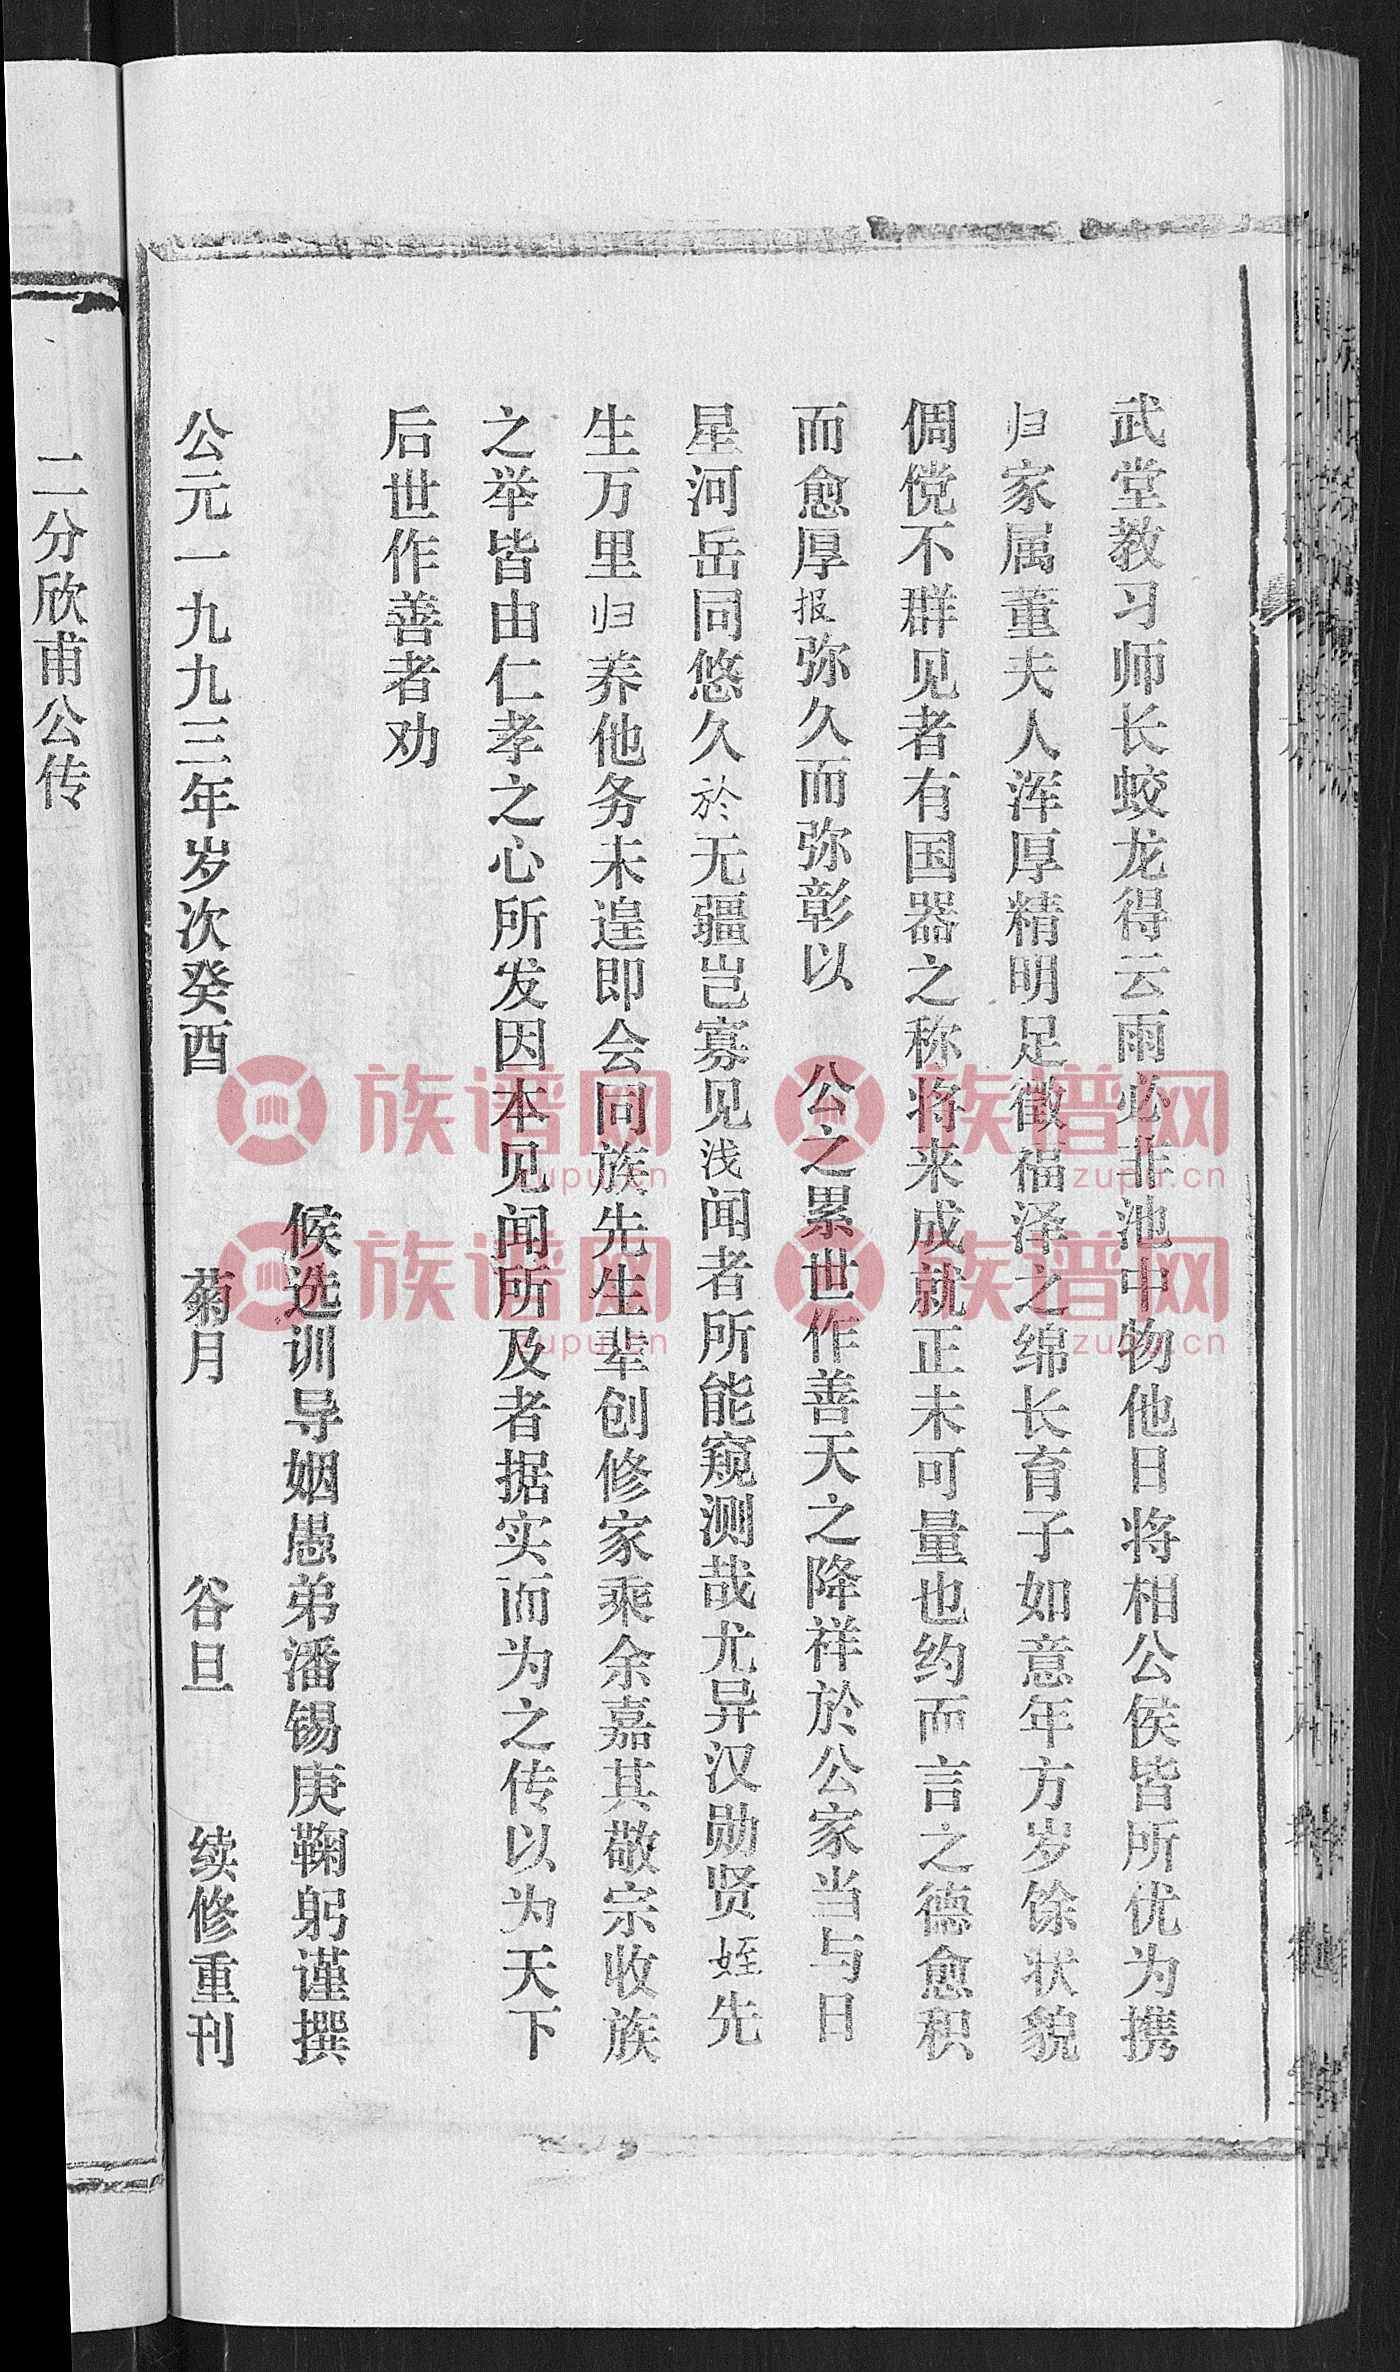 武堂教习师长蛟龙得云雨必非池中物他日将相公侯皆所优为携
归家属董夫人浑厚精明足徵福泽之绵长育子如意年方岁馀状貌
倜傥不群见者有国器之称将来成就正未可量也约而言之德愈积
而愈厚报弥久而弥彰以 公之累世作善天之降祥於公家当与日
星河岳同悠久於无疆岂寡见浅闻者所能窥测哉尤异汉勋贤姪先
生万里归养他务未遑即会同族先生辈创修家乘余嘉其敬宗收族
之举皆由仁孝之心所发因本见闻所及者据实而为之传以为天下
后世作善者劝
候选训导姻愚弟潘锡庚鞠躬谨撰
公元一九九三年岁次癸酉 菊月 谷旦 续修重刊
二分欣甫公传
族谱网 zupu.cn
族谱网 zupu.cn
族谱网 zupu.cn
族谱网 zupu.cn